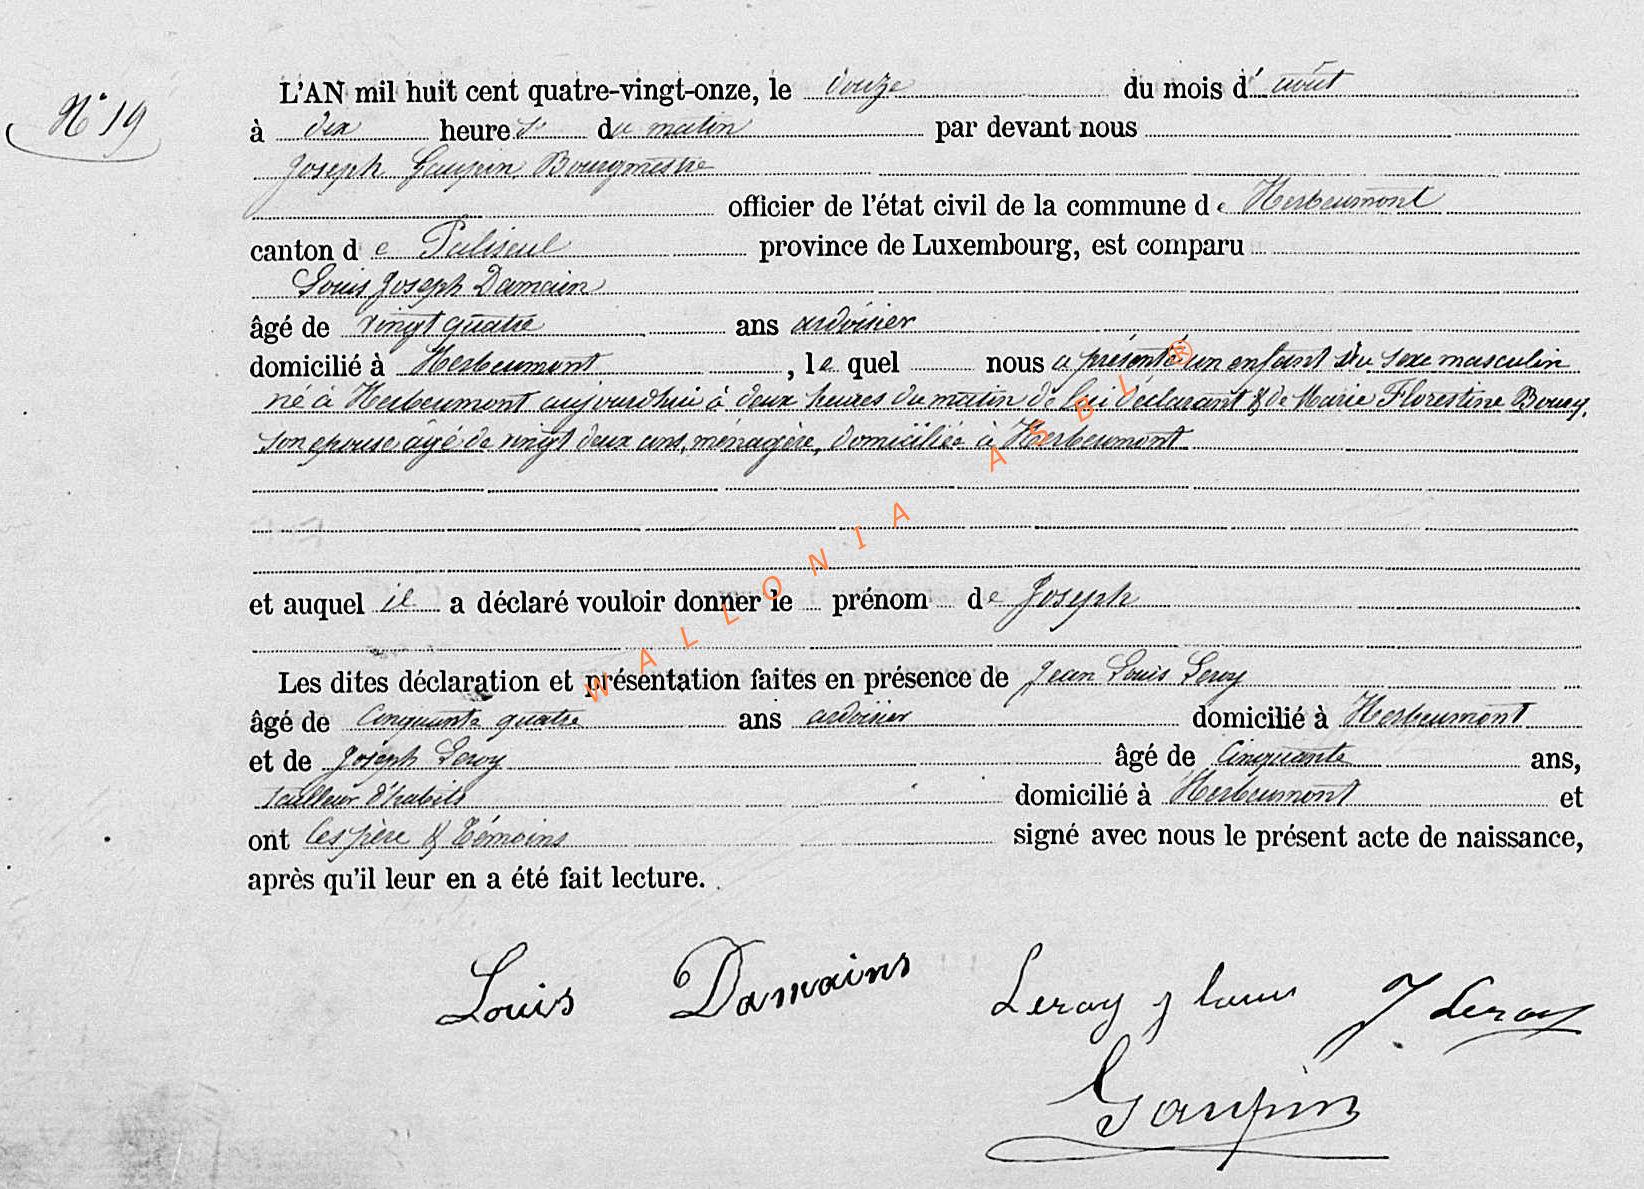 N° 19
L'AN mil huit cent quatre-vingt-onze, le douze du mois d'août
à dix heures du matin par devant nous
Joseph Gaupin, Bourgmestre
officier de l'état civil de la commune de Herbeumont
canton de Paliseul province de Luxembourg, est comparu
Louis Joseph Damain
âgé de vingt quatre ans ardoisier
domicilié à Herbeumont, lequel nous a présenté un enfant du sexe masculin
né à Herbeumont aujourd'hui à deux heures du matin de lui déclarant & de Marie Florestine
son épouse âgé de vingt deux ans, ménagère, domiciliée à Herbeumont
et auquel il a déclaré vouloir donner le prénom de Joseph
Les dites déclaration et présentation faites en présence de Jean Louis Leroy
âgé de cinquante quatre ans ardoisier domicilié à Herbeumont
et de Joseph Leroy âgé de cinquante ans,
tailleur d'habits domicilié à Herbeumont et
ont les père & témoins signé avec nous le présent acte de naissance,
après qu'il leur en a été fait lecture.
Louis Damains Leroy j louis J Leroy
Gaupin
WALLONIA ASBL ®